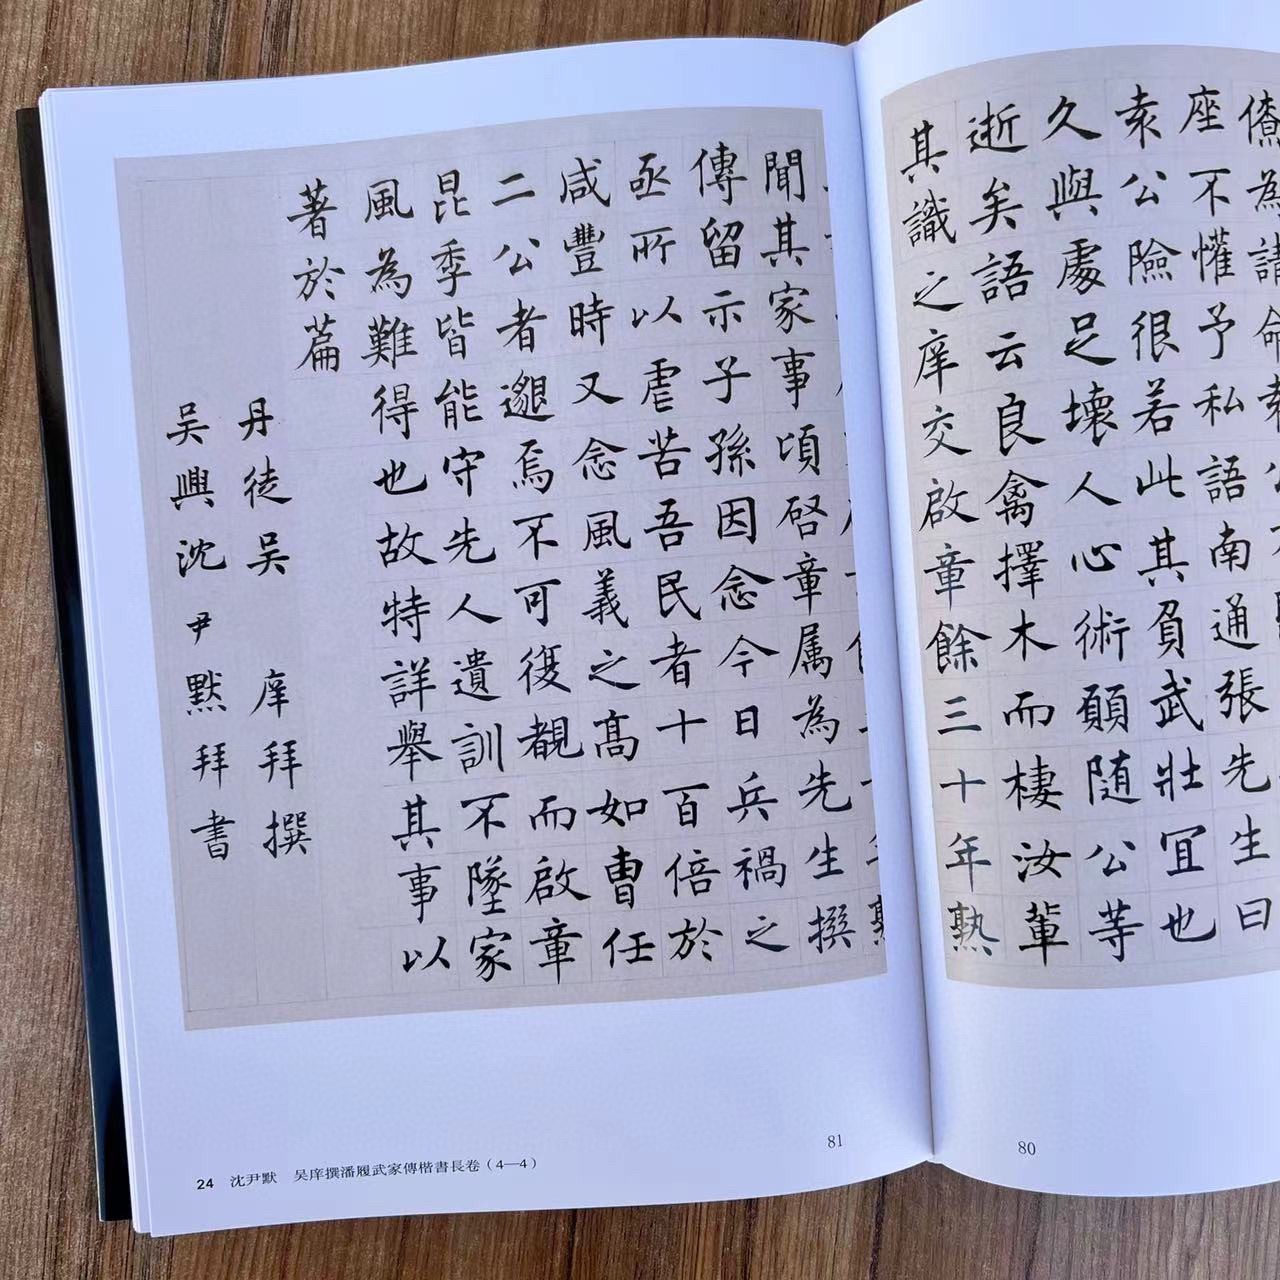 僚為
座不懽予私語南通張先生曰
袁公險很若此其負武壯宜也
久與處足壞人心術願隨公等
逝矣語云良禽擇木而棲汝輩
其識之庠交啟章餘三十年熟
聞其家事頃啓章属為先生撰
傳留示子孫因念今日兵禍之
亟所以虐苦吾民者十百倍於
咸豐時又念風義之高如曹任
二公者邈焉不可復覩而啟章
昆季皆能守先人遺訓不墜家
風為難得也故特詳舉其事以
著於篇
丹徒吴 庠拜撰
吴興沈尹默拜書
80
81
24 沈尹默 吴庠撰潘履武家傳楷書長卷（4—4）